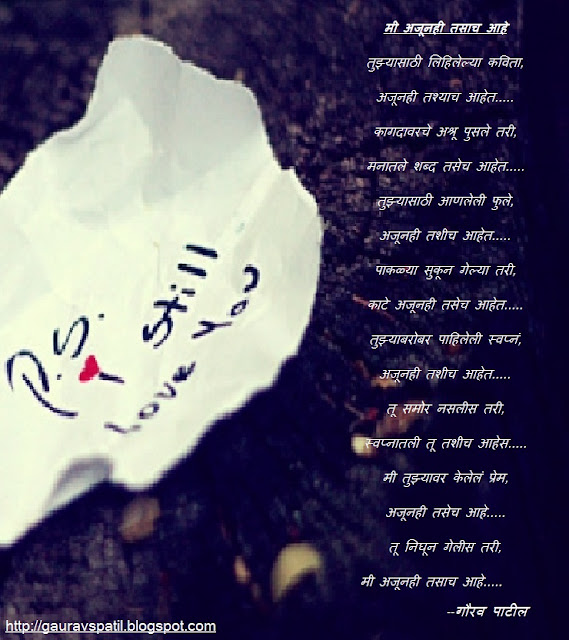 मी अजूनही तसाच आहे
तुझ्यासाठी लिहिलेल्या कविता,
अजूनही तश्याच आहेत.....
कागदावरचे अश्रू पुसले तरी,
मनातले शब्द तसेच आहेत.....
तुझ्यासाठी आणलेली फुले,
अजूनही तशीच आहेत.....
पाकळ्या सुकून गेल्या तरी,
काटे अजूनही तसेच आहेत.....
तुझ्याबरोबर पाहिलेली स्वप्नं,
अजूनही तशीच आहेत.....
तू समोर नसलीस तरी,
स्वप्नातली तू तशीच आहेस.....
मी तुझ्यावर केलेलं प्रेम,
अजूनही तसेच आहे.....
तू निघून गेलीस तरी,
मी अजूनही तसाच आहे.....
--गौरव पाटील
P.S.
I Still
Love You
http://gauravspatil.blogspot.com